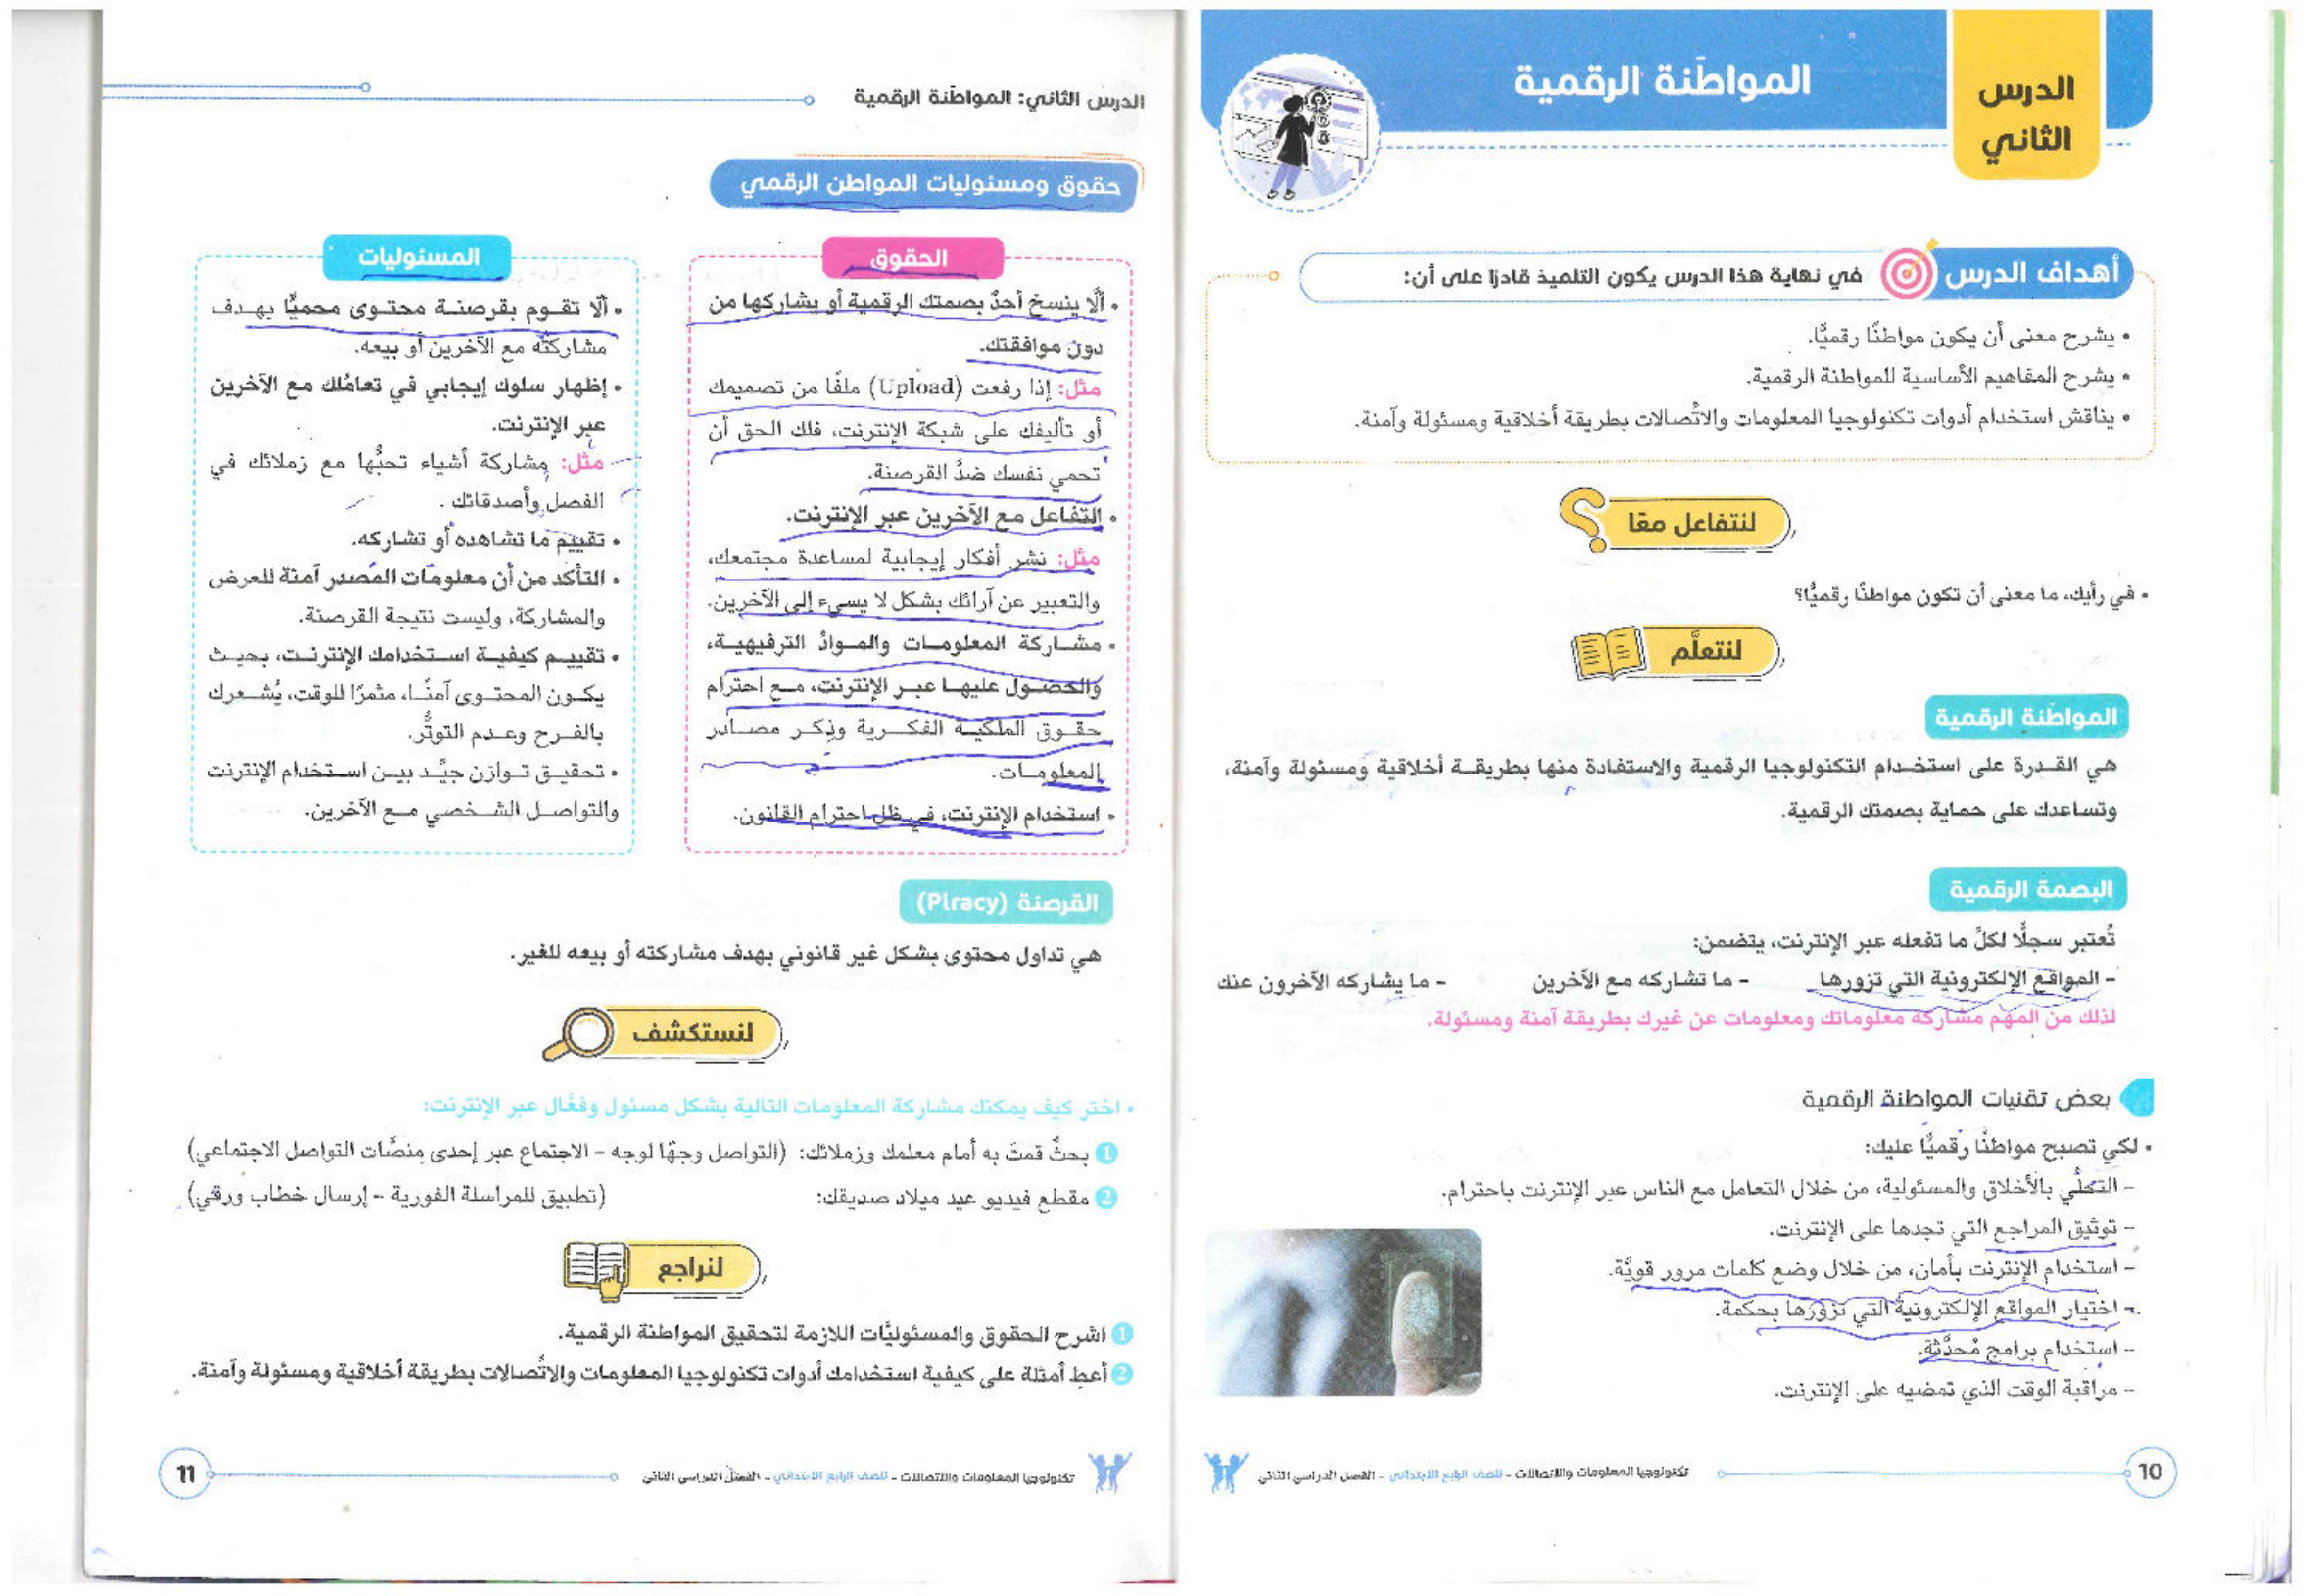 الدرس
الثاني
المواطَنة الرقمية
أهداف الدرس
في نهاية هذا الدرس يكون التلميذ قادرًا على أن:
• يشرح معنى أن يكون مواطنًا رقميًّا.
• يشرح المفاهيم الأساسية للمواطنة الرقمية.
• يناقش استخدام أدوات تكنولوجيا المعلومات والاتِّصالات بطريقة أخلاقية ومسئولة وآمنة.
لنتفاعل معًا
• في رأيك، ما معنى أن تكون مواطنًا رقميًّا؟
لنتعلَّم
المواطَنة الرقمية
هي القدرة على استخدام التكنولوجيا الرقمية والاستفادة منها بطريقة أخلاقية ومسئولة وآمنة،
وتساعدك على حماية بصمتك الرقمية.
البصمة الرقمية
تُعتبر سجلًّا لكلِّ ما تفعله عبر الإنترنت، يتضمن:
- المواقع الإلكترونية التي تزورها - ما تشاركه مع الآخرين - ما يشاركه الآخرون عنك
لذلك من المهم مشاركة معلوماتك ومعلومات عن غيرك بطريقة آمنة ومسئولة.
بعض تقنيات المواطنة الرقمية
• لكي تصبح مواطنًا رقميًّا عليك:
- التحلِّي بالأخلاق والمسئولية، من خلال التعامل مع الناس عبر الإنترنت باحترام.
- توثيق المراجع التي تجدها على الإنترنت.
- استخدام الإنترنت بأمان، من خلال وضع كلمات مرور قويَّة.
- اختيار المواقع الإلكترونية التي تزورها بحكمة.
- استخدام برامج مُحدَّثة.
- مراقبة الوقت الذي تمضيه على الإنترنت.
10
تكنولوجيا المعلومات والاتصالات - للصف الرابع الابتدائي - الفصل الدراسي الثاني
الدرس الثاني: المواطَنة الرقمية
حقوق ومسئوليات المواطن الرقمي
الحقوق
• ألَّا ينسخ أحدٌ بصمتك الرقمية أو يشاركها من
دون موافقتك.
مثل: إذا رفعت (Upload) ملفًا من تصميمك
أو تأليفك على شبكة الإنترنت، فلك الحق أن
تحمي نفسك ضدَّ القرصنة.
• التفاعل مع الآخرين عبر الإنترنت.
مثل: نشر أفكار إيجابية لمساعدة مجتمعك،
والتعبير عن آرائك بشكل لا يسيء إلى الآخرين.
• مشاركة المعلومات والموادِّ الترفيهية،
والحصول عليها عبر الإنترنت، مع احترام
حقوق الملكية الفكرية وذِكر مصادر
المعلومات.
• استخدام الإنترنت، في ظل احترام القانون.
المسئوليات
• ألَّا تقوم بقرصنة محتوى محميًّا بهدف
مشاركته مع الآخرين أو بيعه.
• إظهار سلوك إيجابي في تعامُلك مع الآخرين
عبر الإنترنت.
مثل: مشاركة أشياء تحبُّها مع زملائك في
الفصل وأصدقائك.
• تقييم ما تشاهده أو تشاركه.
• التأكد من أن معلومات المَصدر آمنة للعرض
والمشاركة، وليست نتيجة القرصنة.
• تقييم كيفية استخدامك الإنترنت، بحيث
يكون المحتوى آمنًا، مثمرًا للوقت، يُشعرك
بالفرح وعدم التوتُّر.
• تحقيق توازن جيِّد بين استخدام الإنترنت
والتواصل الشخصي مع الآخرين.
القرصنة (Piracy)
هي تداول محتوى بشكل غير قانوني بهدف مشاركته أو بيعه للغير.
لنستكشف
• اختر كيف يمكنك مشاركة المعلومات التالية بشكل مسئول وفعَّال عبر الإنترنت:
1 بحثٌ قمتَ به أمام معلمك وزملائك: (التواصل وجهًا لوجه - الاجتماع عبر إحدى منصَّات التواصل الاجتماعي)
2 مقطع فيديو عيد ميلاد صديقك: (تطبيق للمراسلة الفورية - إرسال خطاب ورقي)
لنراجع
1 اشرح الحقوق والمسئوليَّات اللازمة لتحقيق المواطنة الرقمية.
2 أعطِ أمثلة على كيفية استخدامك أدوات تكنولوجيا المعلومات والاتِّصالات بطريقة أخلاقية ومسئولة وآمنة.
تكنولوجيا المعلومات والاتصالات - للصف الرابع الابتدائي - الفصل الدراسي الثاني
11